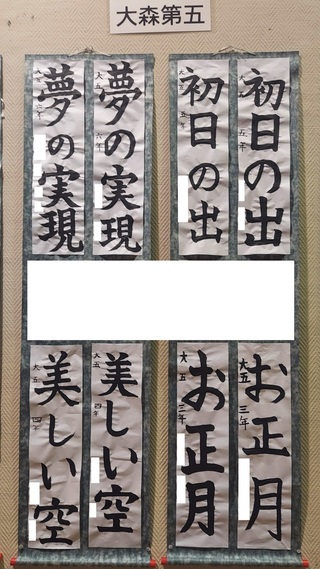 大森第五
初日の出
大五 五年
初日の出
大五 五年
夢の実現
大五 六年
夢の実現
お正月
大五 三年
お正月
大五 三年
美しい空
大五 四年
美しい空
大五 四年